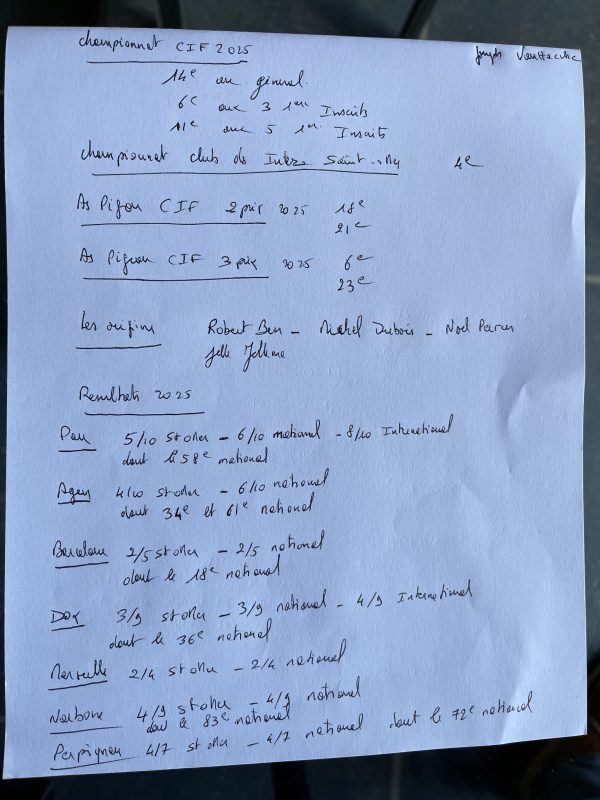 championnat CIF 2025
Joseph Vanhecke
14e au général
6e aux 3 1ers Inscrits
11e aux 5 1ers Inscrits
championnat club de Inter Saint 4e
As Pigeon CIF 2 prix 2025 18e
21e
As Pigeon CIF 3 prix 2025 6e
23e
Les origines Robert Ben - Michel Dubois - Noel
Jelle Jellema
Resultats 2025
Pau 5/10 St oller - 6/10 national - 8/10 International
dont le 58e national
Agen 4/10 St oller - 6/10 national
dont 34e et 61e national
Barcelone 2/5 St oller - 2/5 national
dont le 18e national
Dax 3/9 St oller - 3/9 national - 4/9 International
dont le 36e national
Marseille 2/4 St oller - 2/4 national
Narbonne 4/9 St oller - 4/9 national
dont le 83e national
Perpignan 4/7 St oller - 4/7 national dont le 72e national